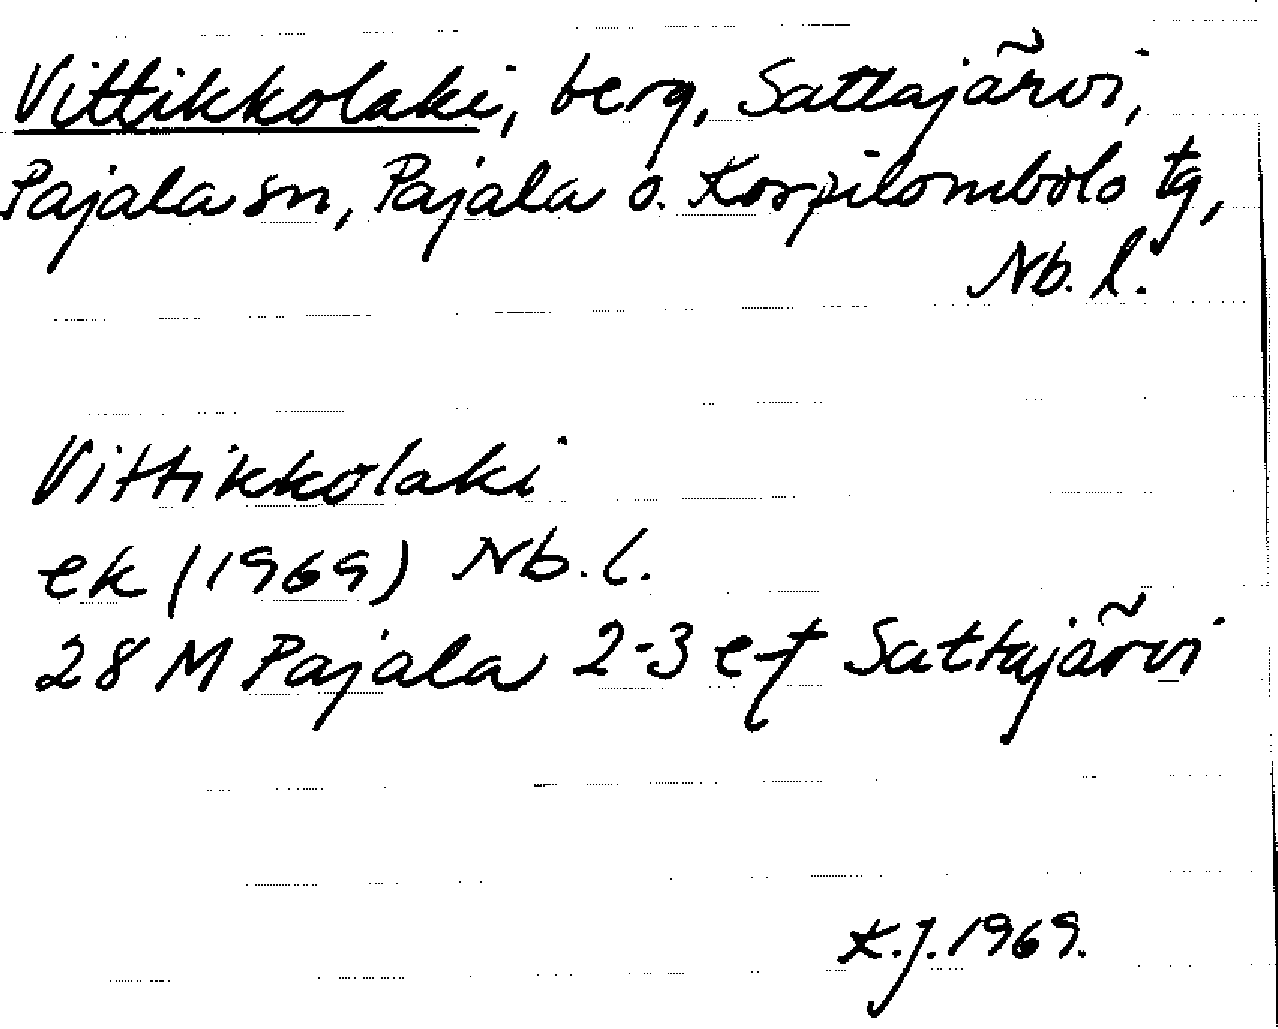 Vittikkolaki, berg, Sattajärvi,
Pajala sn, Pajala o. Korpilombolo tg,
Nb. l.
Vittikkolaki
ek (1969) Nb. l.
28 M Pajala 2-3 e-f Sattajärvi
K.J. 1969.